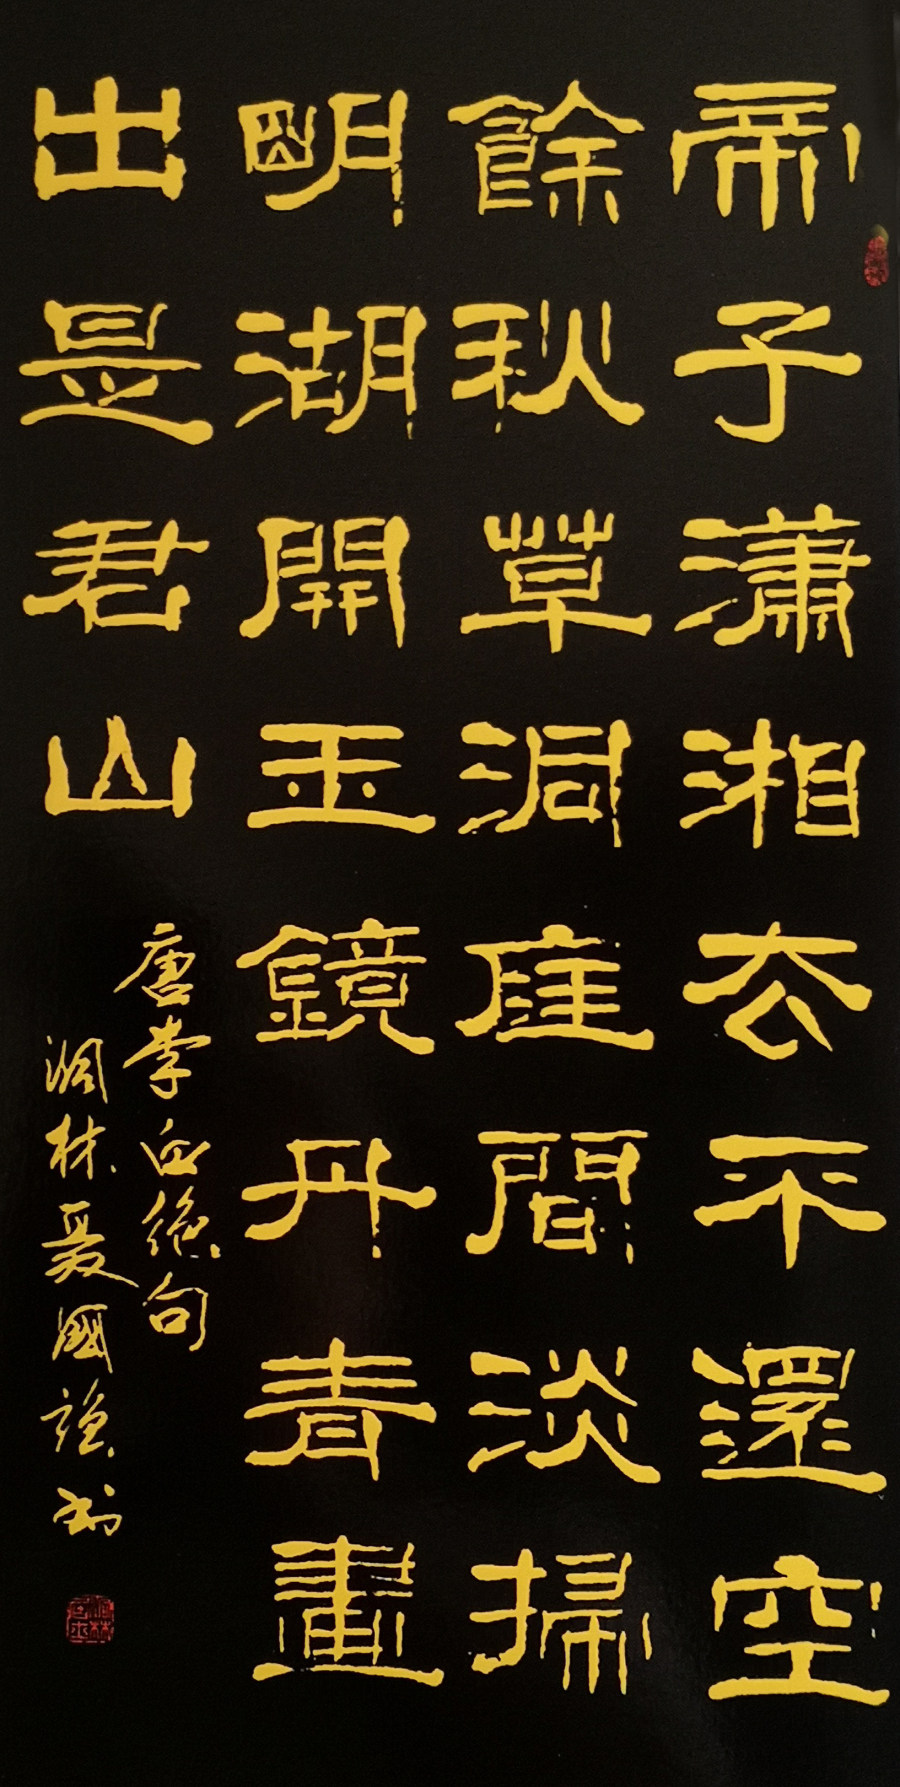 帝子瀟湘去不還空
餘秋草洞庭間淡掃
明湖開玉鏡丹青畫
出是君山
唐李白絶句
林聂國强书